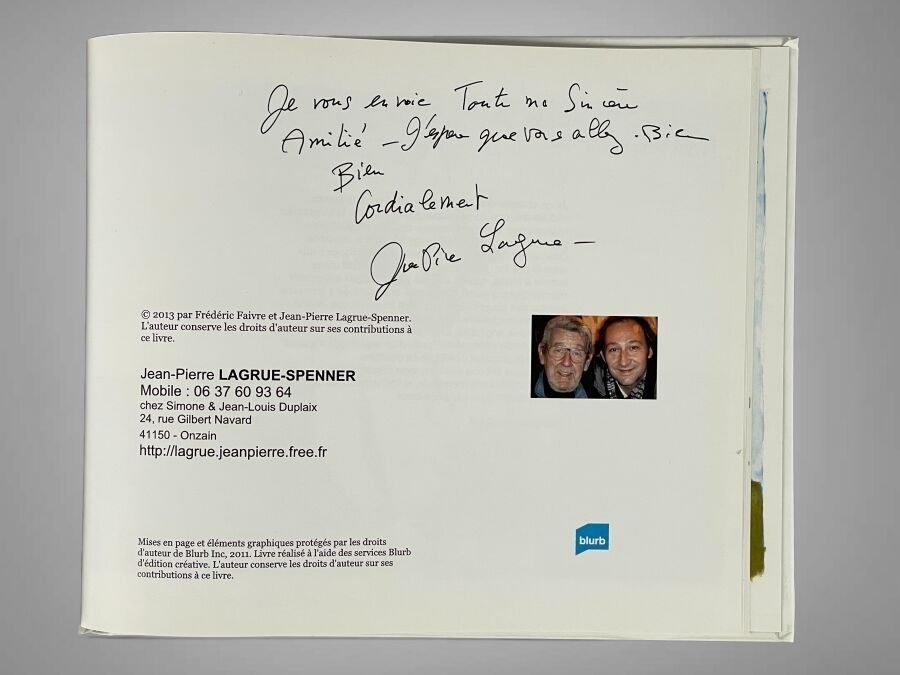 Je vous envoie Toute ma Sincère
Amitié – J'espère que vous allez . Bien
Bien
Cordialement
Jean Pierre Lagrue –
© 2013 par Frédéric Faivre et Jean-Pierre Lagrue-Spenner.
L'auteur conserve les droits d'auteur sur ses contributions à
ce livre.
Jean-Pierre LAGRUE-SPENNER
Mobile : 06 37 60 93 64
chez Simone & Jean-Louis Duplaix
24, rue Gilbert Navard
41150 - Onzain
http://lagrue.jeanpierre.free.fr
Mises en page et éléments graphiques protégés par les droits
d'auteur de Blurb Inc, 2011. Livre réalisé à l'aide des services Blurb
d'édition créative. L'auteur conserve les droits d'auteur sur ses
contributions à ce livre.
blurb